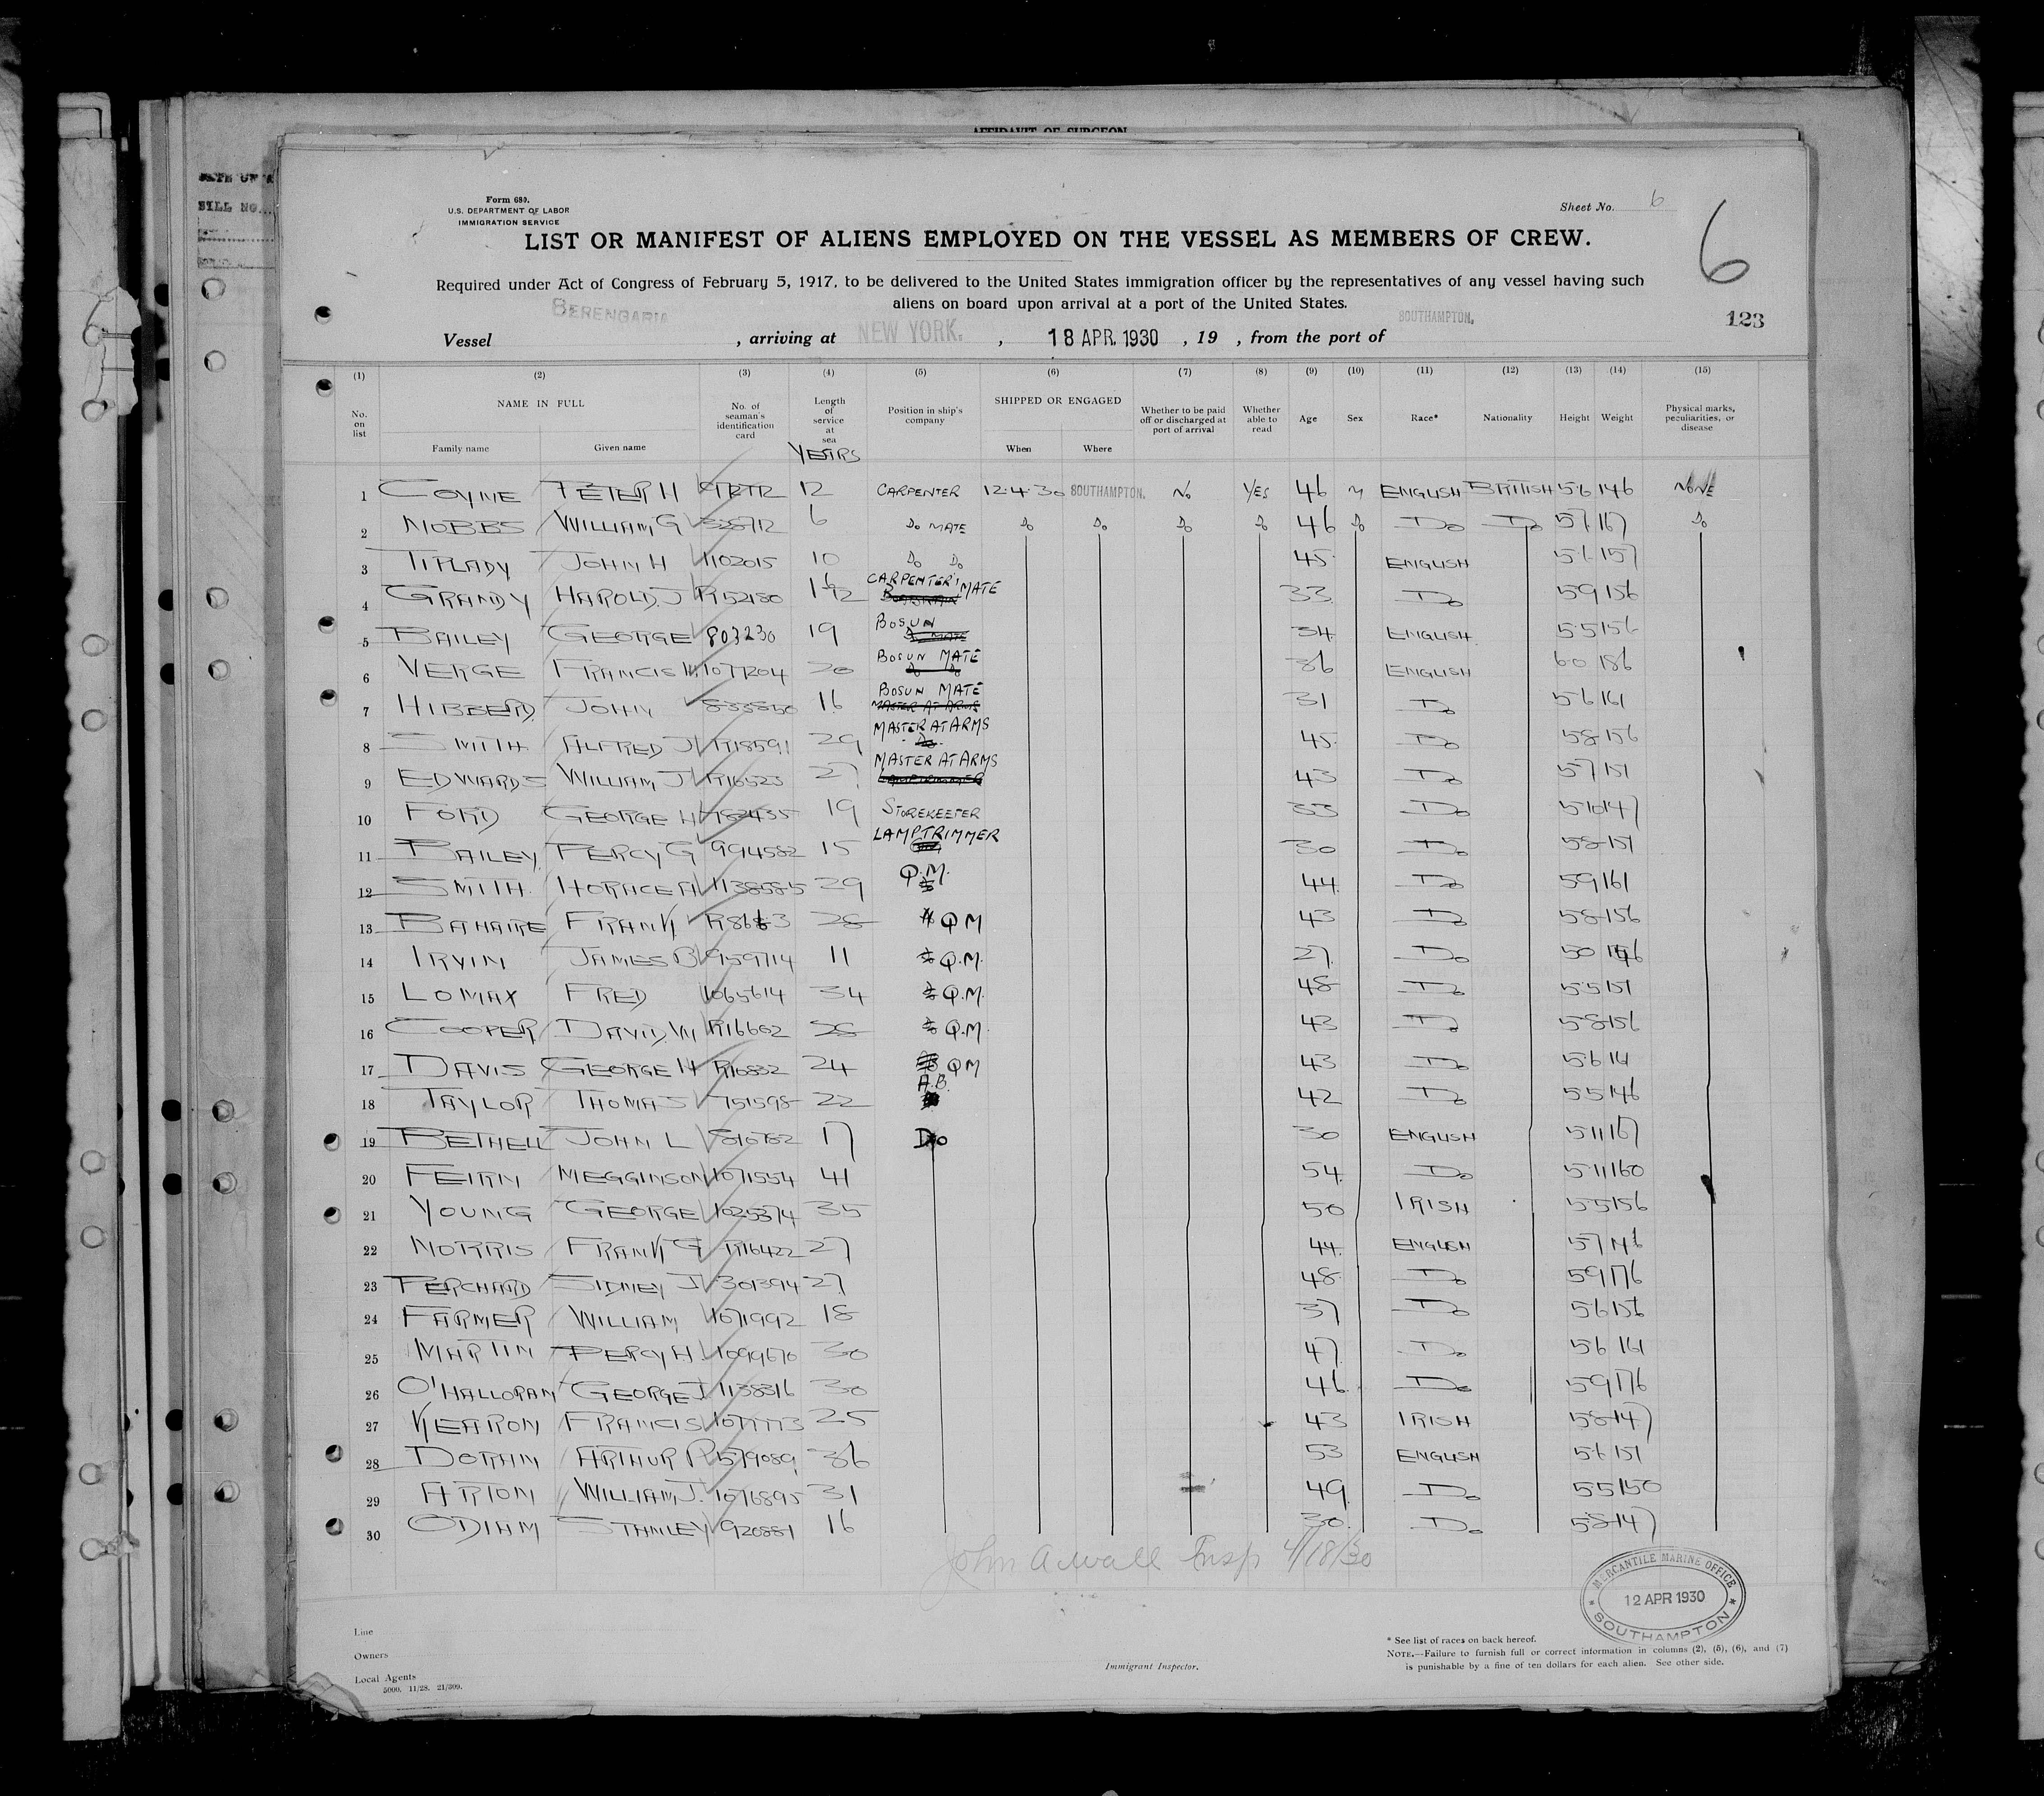 AFFIDAVIT OF SURGEON
BILL NO.
Form 680.
U.S. DEPARTMENT OF LABOR
IMMIGRATION SERVICE
Sheet No. 6
6
LIST OR MANIFEST OF ALIENS EMPLOYED ON THE VESSEL AS MEMBERS OF CREW.
Required under Act of Congress of February 5, 1917, to be delivered to the United States immigration officer by the representatives of any vessel having such
aliens on board upon arrival at a port of the United States.
123
Vessel BERENGARIA, arriving at NEW YORK., 18 APR. 1930, 19 , from the port of SOUTHAMPTON.
(1) (2) (3) (4) (5) (6) (7) (8) (9) (10) (11) (12) (13) (14) (15)
No. on list NAME IN FULL Family name Given name No. of seaman's identification card Length of service at sea YEARS Position in ship's company SHIPPED OR ENGAGED When Where Whether to be paid off or discharged at port of arrival Whether able to read Age Sex Race* Nationality Height Weight Physical marks, peculiarities, or disease
1 COYNE PETER H 12 CARPENTER 12.4.30 SOUTHAMPTON. No YES 46 M ENGLISH BRITISH 5.6 146 NONE
2 MOBBS WILLIAM G 6 Do MATE Do Do Do Do 46 Do Do Do 5.7 167 Do
3 TIPLADY JOHN H 1102015 10 Do Do 45 ENGLISH 5.6 157
4 GRANDY HAROLD.J R52180 CARPENTER'S MATE 33 Do 5.9 156
5 BAILEY GEORGE 803230 19 BOSUN 34 ENGLISH 5.5 156
6 VERGE FRANCIS W 1077204 20 BOSUN MATE 36 ENGLISH 6.0 186
7 HIBBERD JOHN 833850 16 BOSUN MATE 31 Do 5.6 161
8 SMITH ALFRED J R18591 29 MASTER AT ARMS 45 Do 5.8 156
9 EDWARDS WILLIAM J R16523 27 MASTER AT ARMS 43 Do 5.7 151
10 FORD GEORGE H 782435 19 STOREKEEPER 33 Do 5.10 147
11 BAILEY PERCY G 994582 15 LAMPTRIMMER 30 Do 5.8 151
12 SMITH HORACE A 1138585 29 Q.M. 44 Do 5.9 161
13 BAHAIRE FRANK 28 QM 43 Do 5.8 156
14 IRVIN JAMES B 959714 11 Q.M. 27 Do 5.0
15 LOMAX FRED 1065614 34 Q.M. 48 Do 5.5 151
16 COOPER DAVID W R16662 28 Q.M. 43 Do 5.8 156
17 DAVIS GEORGE H R16832 24 QM 43 Do 5.6 141
18 TAYLOR THOMAS 751598 22 A.B. 42 Do 5.5 146
19 BETHELL JOHN L 816782 17 Do 30 ENGLISH 5.11 167
20 FEIRN MEGGINSON 1071554 41 54 Do 5.11 160
21 YOUNG GEORGE 1025374 35 50 IRISH 5.5 156
22 NORRIS FRANK G R16422 27 44 ENGLISH 5.7 146
23 PERCHARD SIDNEY J 301394 27 48 Do 5.9 176
24 FARMER WILLIAM 1071992 18 37 Do 5.6 156
25 MARTIN PERCY H. 1099670 30 47 Do 5.6 161
26 O'HALLORAN GEORGE J 1138316 30 46 Do 5.9 176
27 KEARON FRANCIS 1077773 25 43 IRISH 5.8 147
28 DORAN ARTHUR R 579089 36 53 ENGLISH 5.6 151
29 ARION WILLIAM J. 1076895 31 49 Do 5.5 150
30 ODIAM STANLEY 920881 16 30 Do 5.8 147
John A Wall Insp 4/18/30
MERCANTILE MARINE OFFICE
12 APR 1930
SOUTHAMPTON
Line
Owners
Local Agents
5000. 11/28. 21/309.
Immigrant Inspector.
* See list of races on back hereof.
NOTE.—Failure to furnish full or correct information in columns (2), (5), (6), and (7)
is punishable by a fine of ten dollars for each alien. See other side.